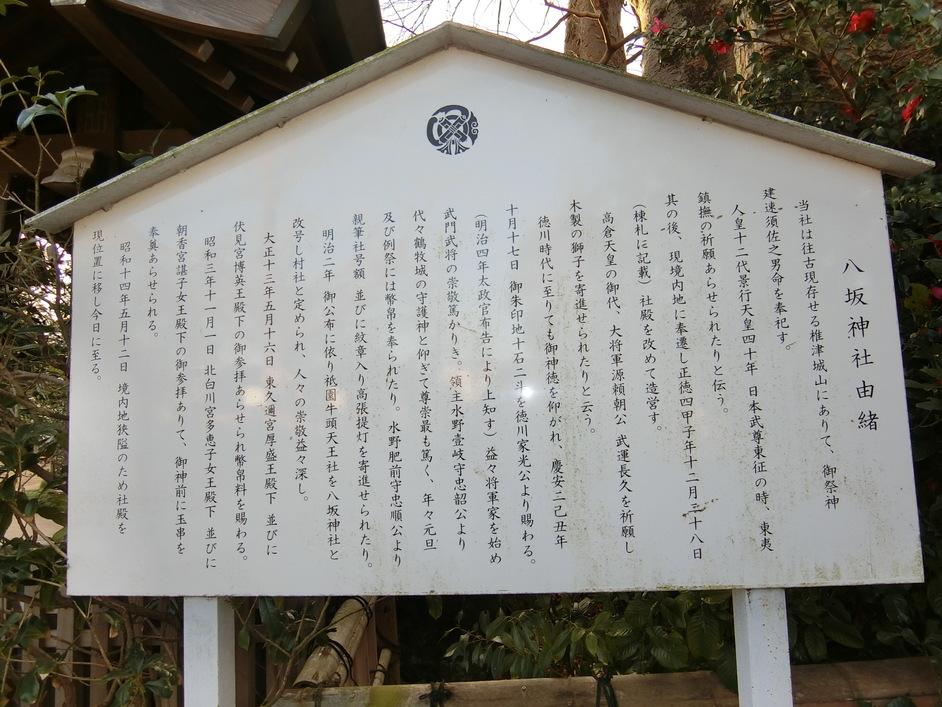 八坂神社由緒
当社は往古現存せる椎津城山にありて、御祭神
建速須佐之男命を奉祀す。
人皇十二代景行天皇四十年 日本武尊東征の時、東夷
鎮撫の祈願あらせられたりと伝う。
其の後、現境内地に奉遷し正徳四甲子年十二月二十八日
(棟札に記載)社殿を改めて造営す。
高倉天皇の御代、大将軍源頼朝公 武運長久を祈願し
木製の獅子を寄進せられたりと云う。
徳川時代に至りても御神徳を仰がれ 慶安二己丑年
十月十七日 御朱印地十石二斗を徳川家光公より賜わる。
(明治四年太政官布告により上知す)益々将軍家を始め
武門武将の崇敬篤かりき。領主水野壹岐守忠韶公より
代々鶴牧城の守護神と仰ぎて尊崇最も篤く、年々元旦
及び例祭には幣帛を奉られたり。水野肥前守忠順公より
親筆社号額 並びに紋章入り高張提灯を寄進せられたり。
明治二年 御公布に依り祇園牛頭天王社を八坂神社と
改号し村社と定められ、人々の崇敬益々深し。
大正十三年五月十六日 東久邇宮厚盛王殿下 並びに
伏見宮博英王殿下の御参拝あらせられ幣帛料を賜わる。
昭和三年十一月一日 北白川宮多恵子女王殿下 並びに
朝香宮諶子女王殿下の御参拝ありて、御神前に玉串を
奉奠あらせられる。
昭和十四年五月十二日 境内地狭隘のため社殿を
現位置に移し今日に至る。